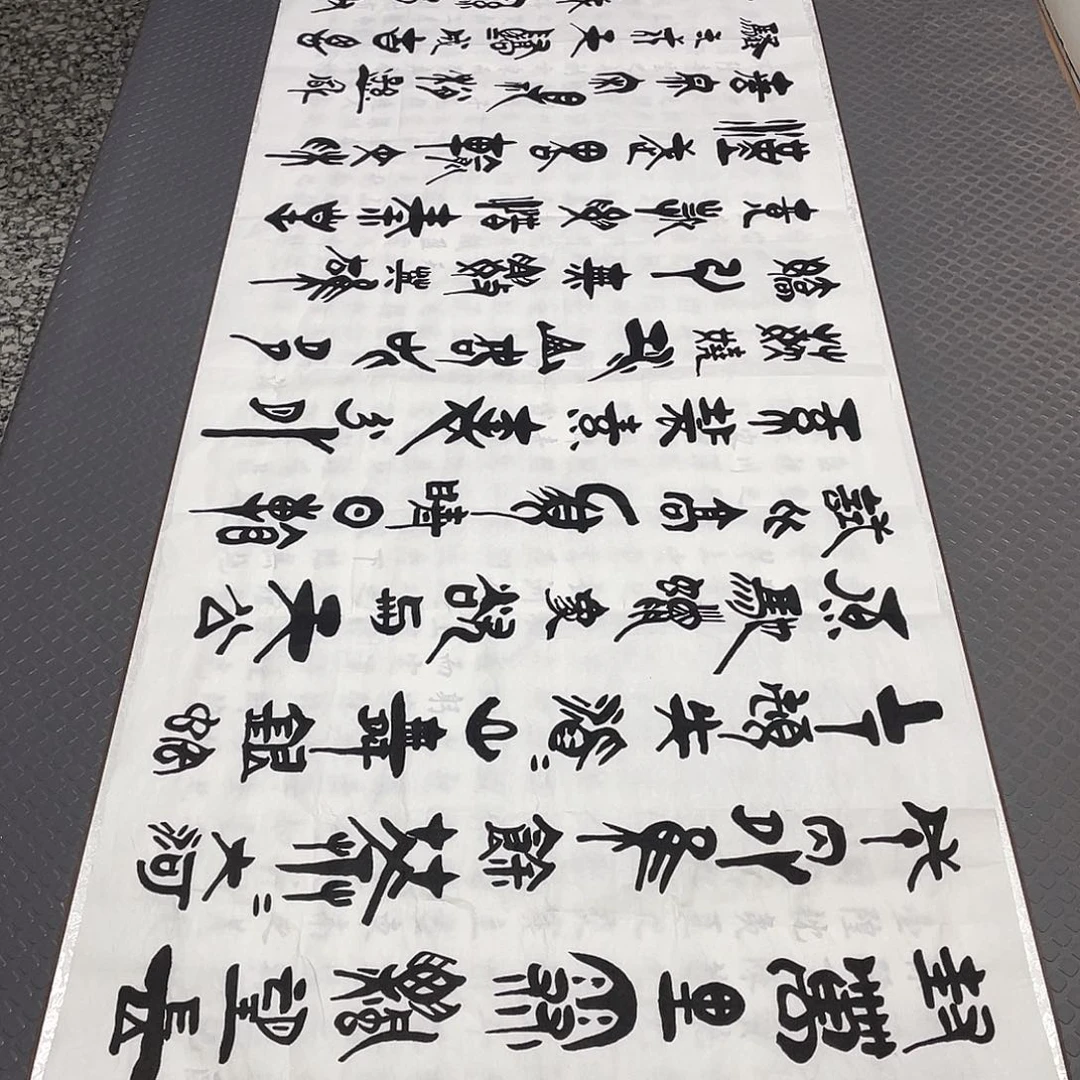 封萬里雪飄望長
城內外惟餘莽莽大河
上下頓失滔滔山舞銀蛇
原馳蠟象欲與天公
試比高須晴日看
紅裝素裹分外
妖嬈江山如此多
嬌引無數英雄
競折腰惜秦皇
漢武略輸文采
唐宗宋祖稍遜風
騷一代天驕成吉思汗